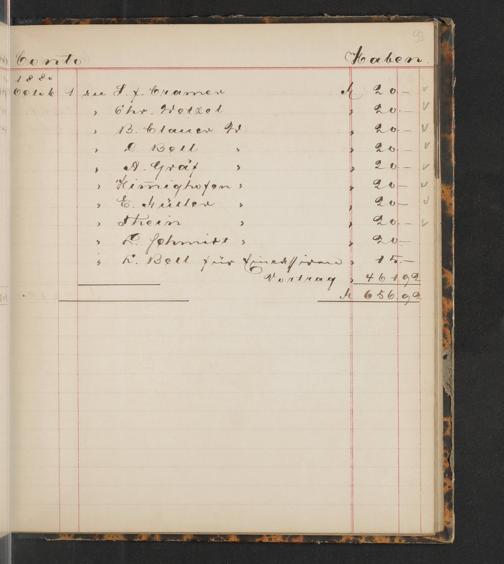 93
Conto Haben
188
Octob 1 an J. f. Cramer M 20 –
" Chr. Wetzel " 20 –
" B. Clauer W " 20 –
" Bell " " 20 –
" A. Gräf " " 20 –
" Kimighofen " " 20 –
" C. Müller " " 20 –
" Thein " " 20 –
" L. Schmidt " " 20 –
" Bell für " 15 –
Vortrag " 461 92
M 656 92